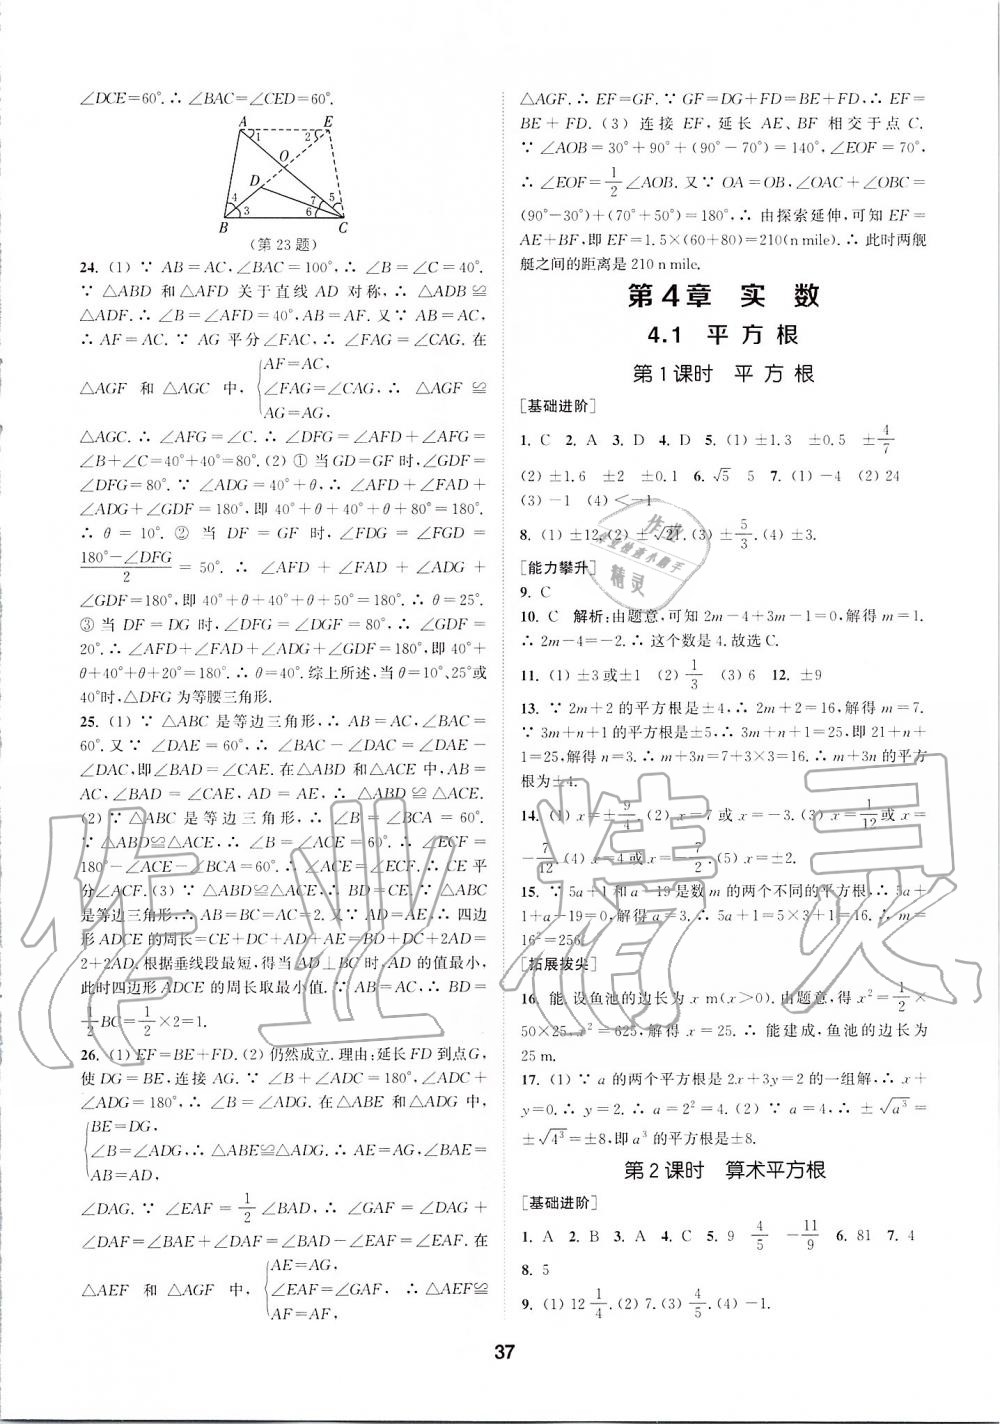 ∠DCE=60°.∴ ∠BAC=∠CED=60°.
A E
1 2
O
D
4 3 7 6 5
B C
(第 23 题)
24. (1) ∵ AB=AC,∠BAC=100°,∴ ∠B=∠C=40°.
∵ △ABD 和△AFD 关于直线 AD 对称,∴ △ADB≌
△ADF.∴ ∠B=∠AFD=40°,AB=AF.又∵ AB=AC,
∴ AF=AC.∵ AG 平分∠FAC,∴ ∠FAG=∠CAG.在
△AGF 和 △AGC 中,{AF=AC, ∠FAG=∠CAG, AG=AG, ∴ △AGF ≌
△AGC.∴ ∠AFG=∠C.∴ ∠DFG=∠AFD+∠AFG=
∠B+∠C=40°+40°=80°.(2) ① 当 GD=GF 时,∠GDF=
∠DFG=80°.∵ ∠ADG=40°+θ,∴ ∠AFD+∠FAD+
∠ADG+∠GDF=180°,即 40°+θ+40°+θ+80°=180°.
∴ θ=10°.② 当 DF=GF 时,∠FDG=∠FGD=
(180°-∠DFG)/2=50°.∴ ∠AFD+∠FAD+∠ADG+
∠GDF=180°,即 40°+θ+40°+θ+50°=180°.∴ θ=25°.
③ 当 DF=DG 时,∠DFG=∠DGF=80°,∴ ∠GDF=
20°.∴ ∠AFD+∠FAD+∠ADG+∠GDF=180°,即 40°+
θ+40°+θ+20°=180°.∴ θ=40°.综上所述,当 θ=10°、25°或
40°时,△DFG 为等腰三角形.
25. (1) ∵ △ABC 是等边三角形,∴ AB=AC,∠BAC=
60°.又∵ ∠DAE=60°,∴ ∠BAC-∠DAC=∠DAE-
∠DAC,即∠BAD=∠CAE.在△ABD 和△ACE 中,AB=
AC,∠BAD=∠CAE,AD=AE,∴ △ABD≌△ACE.
(2) ∵ △ABC 是等边三角形,∴ ∠B=∠BCA=60°.
∵ △ABD≌△ACE,∴ ∠B=∠ACE=60°.∴ ∠ECF=
180°-∠ACE-∠BCA=60°.∴ ∠ACE=∠ECF.∴ CE 平
分∠ACF.(3) ∵ △ABD≌△ACE,∴ BD=CE.∵ △ABC
是等边三角形,∴ AB=BC=AC=2.又∵ AD=AE,∴ 四边
形 ADCE 的周长=CE+DC+AD+AE=BD+DC+2AD=
2+2AD.根据垂线段最短,得当 AD⊥BC 时,AD 的值最小,
此时四边形 ADCE 的周长取最小值.∵ AB=AC,∴ BD=
1/2BC=1/2×2=1.
26. (1) EF=BE+FD.(2) 仍然成立.理由:延长 FD 到点G,
使 DG=BE,连接 AG.∵ ∠B+∠ADC=180°,∠ADC+
∠ADG=180°,∴ ∠B=∠ADG.在△ABE 和△ADG 中,
{BE=DG, ∠B=∠ADG, AB=AD, ∴ △ABE≌△ADG.∴ AE=AG,∠BAE=
∠DAG.∵ ∠EAF=1/2∠BAD,∴ ∠GAF=∠DAG+
∠DAF=∠BAE+∠DAF=∠BAD-∠EAF=∠EAF.在
△AEF 和 △AGF 中,{AE=AG, ∠EAF=∠GAF, AF=AF, ∴ △AEF≌
△AGF.∴ EF=GF.∵ GF=DG+FD=BE+FD,∴ EF=
BE+FD.(3) 连接 EF,延长 AE、BF 相交于点 C.
∵ ∠AOB=30°+90°+(90°-70°)=140°,∠EOF=70°,
∴ ∠EOF=1/2∠AOB.又∵ OA=OB,∠OAC+∠OBC=
(90°-30°)+(70°+50°)=180°,∴ 由探索延伸,可知 EF=
AE+BF,即 EF=1.5×(60+80)=210(n mile).∴ 此时两舰
艇之间的距离是 210 n mile.
第 4 章 实 数
4.1 平 方 根
第 1 课时 平 方 根
[基础进阶]
1. C 2. A 3. D 4. D 5. (1) ±1.3 ±0.5 ±4/7
(2) ±1.6 ±2 ±0.1 6. √5 5 7. (1) -4 (2) 24
(3) -1 (4) <-1
8. (1) ±12.(2) ±√21.(3) ±5/3.(4) ±3.
[能力攀升]
9. C
10. C 解析:由题意,可知 2m-4+3m-1=0,解得 m=1.
∴ 2m-4=-2.∴ 这个数是 4.故选 C.
11. (1) ±3 或±1 (2) 1/3 (3) 6 12. ±9
13. ∵ 2m+2 的平方根是±4,∴ 2m+2=16,解得 m=7.
∵ 3m+n+1 的平方根是±5,∴ 3m+n+1=25,即 21+n+
1=25,解得 n=3.∴ m+3n=7+3×3=16.∴ m+3n 的平方
根为±4.
14. (1) x=±9/4.(2) x=7 或 x=-3.(3) x=1/12或 x=
-7/12.(4) x=4 或 x=-7/2.(5) x=±2.
15. ∵ 5a+1 和 a-19 是数 m 的两个不同的平方根,∴ 5a+
1+a-19=0,解得 a=3.∴ 5a+1=5×3+1=16.∴ m=
16²=256.
[拓展拔尖]
16. 能.设鱼池的边长为 x m(x>0).由题意,得 x²=1/2×
50×25,x²=625,解得 x=25.∴ 能建成,鱼池的边长为
25 m.
17. (1) ∵ a 的两个平方根是 2x+3y=2 的一组解,∴ x+
y=0.∴ y=2.∴ a=2²=4.(2) ∵ a=4,∴ ±√a³=
±√4³=±8,即 a³ 的平方根是±8.
第 2 课时 算术平方根
[基础进阶]
1. A 2. B 3. A 4. C 5. 9 4/5 -11/9 6. 81 7. 4
8. 5
9. (1) 12 1/4.(2) 7.(3) 4/5.(4) -1.
37
作业精灵